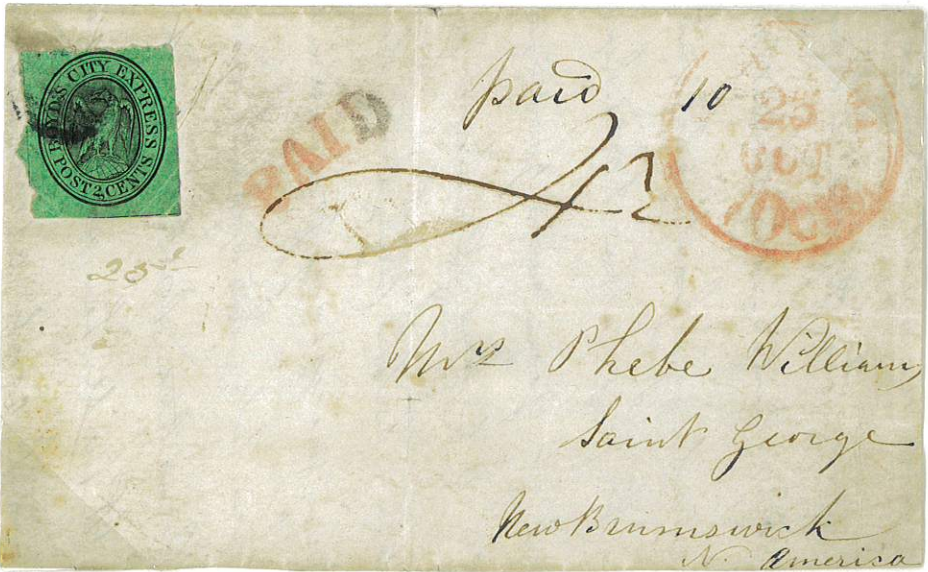 BOYD'S CITY EXPRESS POST 2 CENTS
PAID
paid 10
25
OCT
10cts
25
Mrs Phebe William
Saint George
New Brunswick
N. America